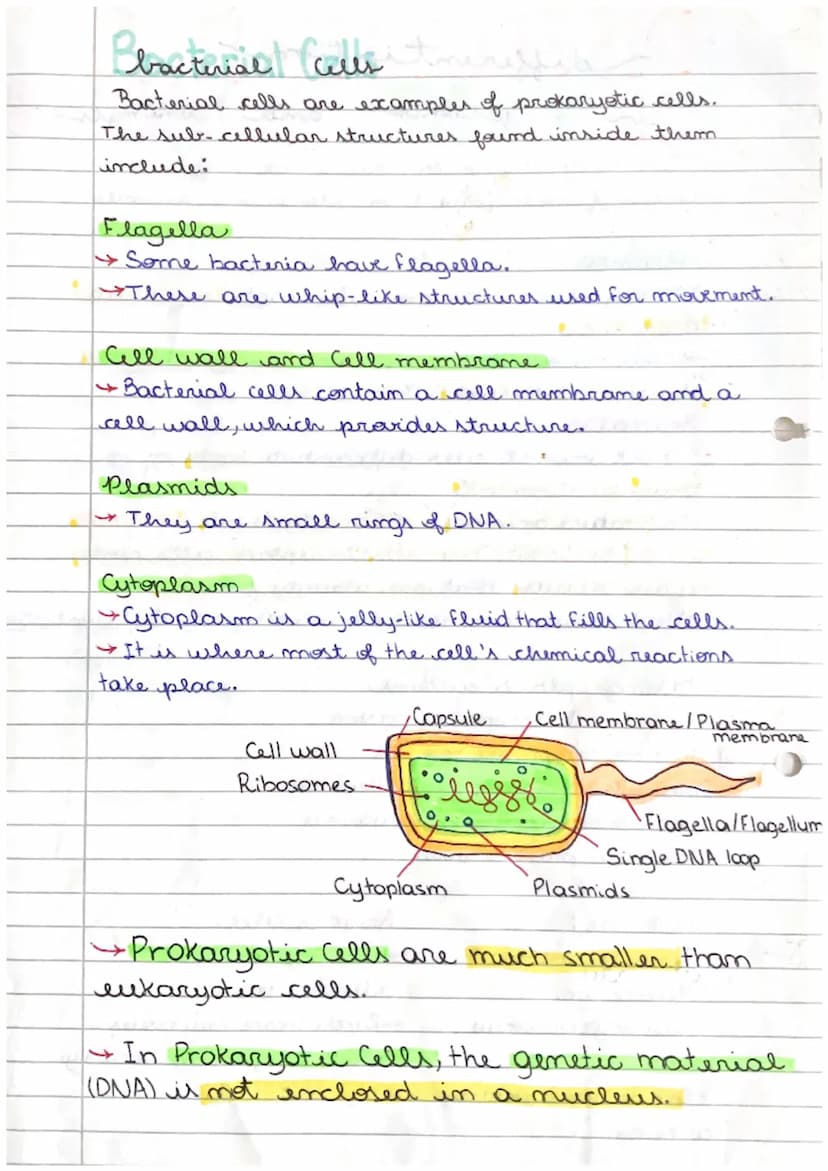 Bacterial Cells
bacterial cells
Bacterial cells are examples of prokaryotic cells.
The sub-cellular structures found inside them
include:
Flagella
→ Some bacteria have flagella.
→ These are whip-like structures used for movement.
Cell wall and Cell membrane
→ Bacterial cells contain a cell membrane and a
cell wall, which provides structure.
Plasmids
→ They are small rings of DNA.
Cytoplasm
→ Cytoplasm is a jelly-like fluid that fills the cells.
→ It is where most of the cell's chemical reactions
take place.
Capsule
Cell membrane / Plasma
membrane
Cell wall
Ribosomes
Flagella/Flagellum
Single DNA loop
Cytoplasm
Plasmids
→ Prokaryotic Cells are much smaller than
eukaryotic cells.
→ In Prokaryotic Cells, the genetic material
(DNA) is not enclosed in a nucleus.